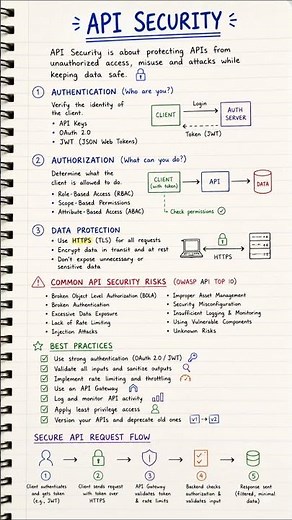 API SECURITY
API Security is about protecting APIs from
unauthorized access, misuse and attacks while
keeping data safe.
1 AUTHENTICATION (Who are you?)
Verify the identity of
the client.
• API Keys
• OAuth 2.0
• JWT (JSON Web Tokens)
CLIENT
Login
AUTH
SERVER
Token (JWT)
2 AUTHORIZATION (What can you do?)
Determine what the
client is allowed to do.
• Role-Based Access (RBAC)
• Scope-Based Permissions
• Attribute-Based Access (ABAC)
CLIENT
(with token)
API
DATA
Check permissions ✓
3 DATA PROTECTION
• Use HTTPS (TLS) for all requests
• Encrypt data in transit and at rest
• Don't expose unnecessary or
sensitive data
HTTPS
COMMON API SECURITY RISKS (OWASP API TOP 10)
• Broken Object Level Authorization (BOLA)
• Broken Authentication
• Excessive Data Exposure
• Lack of Rate Limiting
• Injection Attacks
• Improper Asset Management
• Security Misconfiguration
• Insufficient Logging & Monitoring
• Using Vulnerable Components
• Unknown Risks
BEST PRACTICES
Use strong authentication (OAuth 2.0 / JWT)
Validate all inputs and sanitize outputs
Implement rate limiting and throttling
Use an API Gateway
Log and monitor API activity
Apply least privilege access
Version your APIs and deprecate old ones
v1 → v2
SECURE API REQUEST FLOW
1
Client authenticates
and gets token
(e.g., JWT)
2
Client sends request
with token over
HTTPS
3
API Gateway
validates token
& rate limits
4
Backend checks
authorization &
validates input
5
Response sent
(filtered, minimal
data)